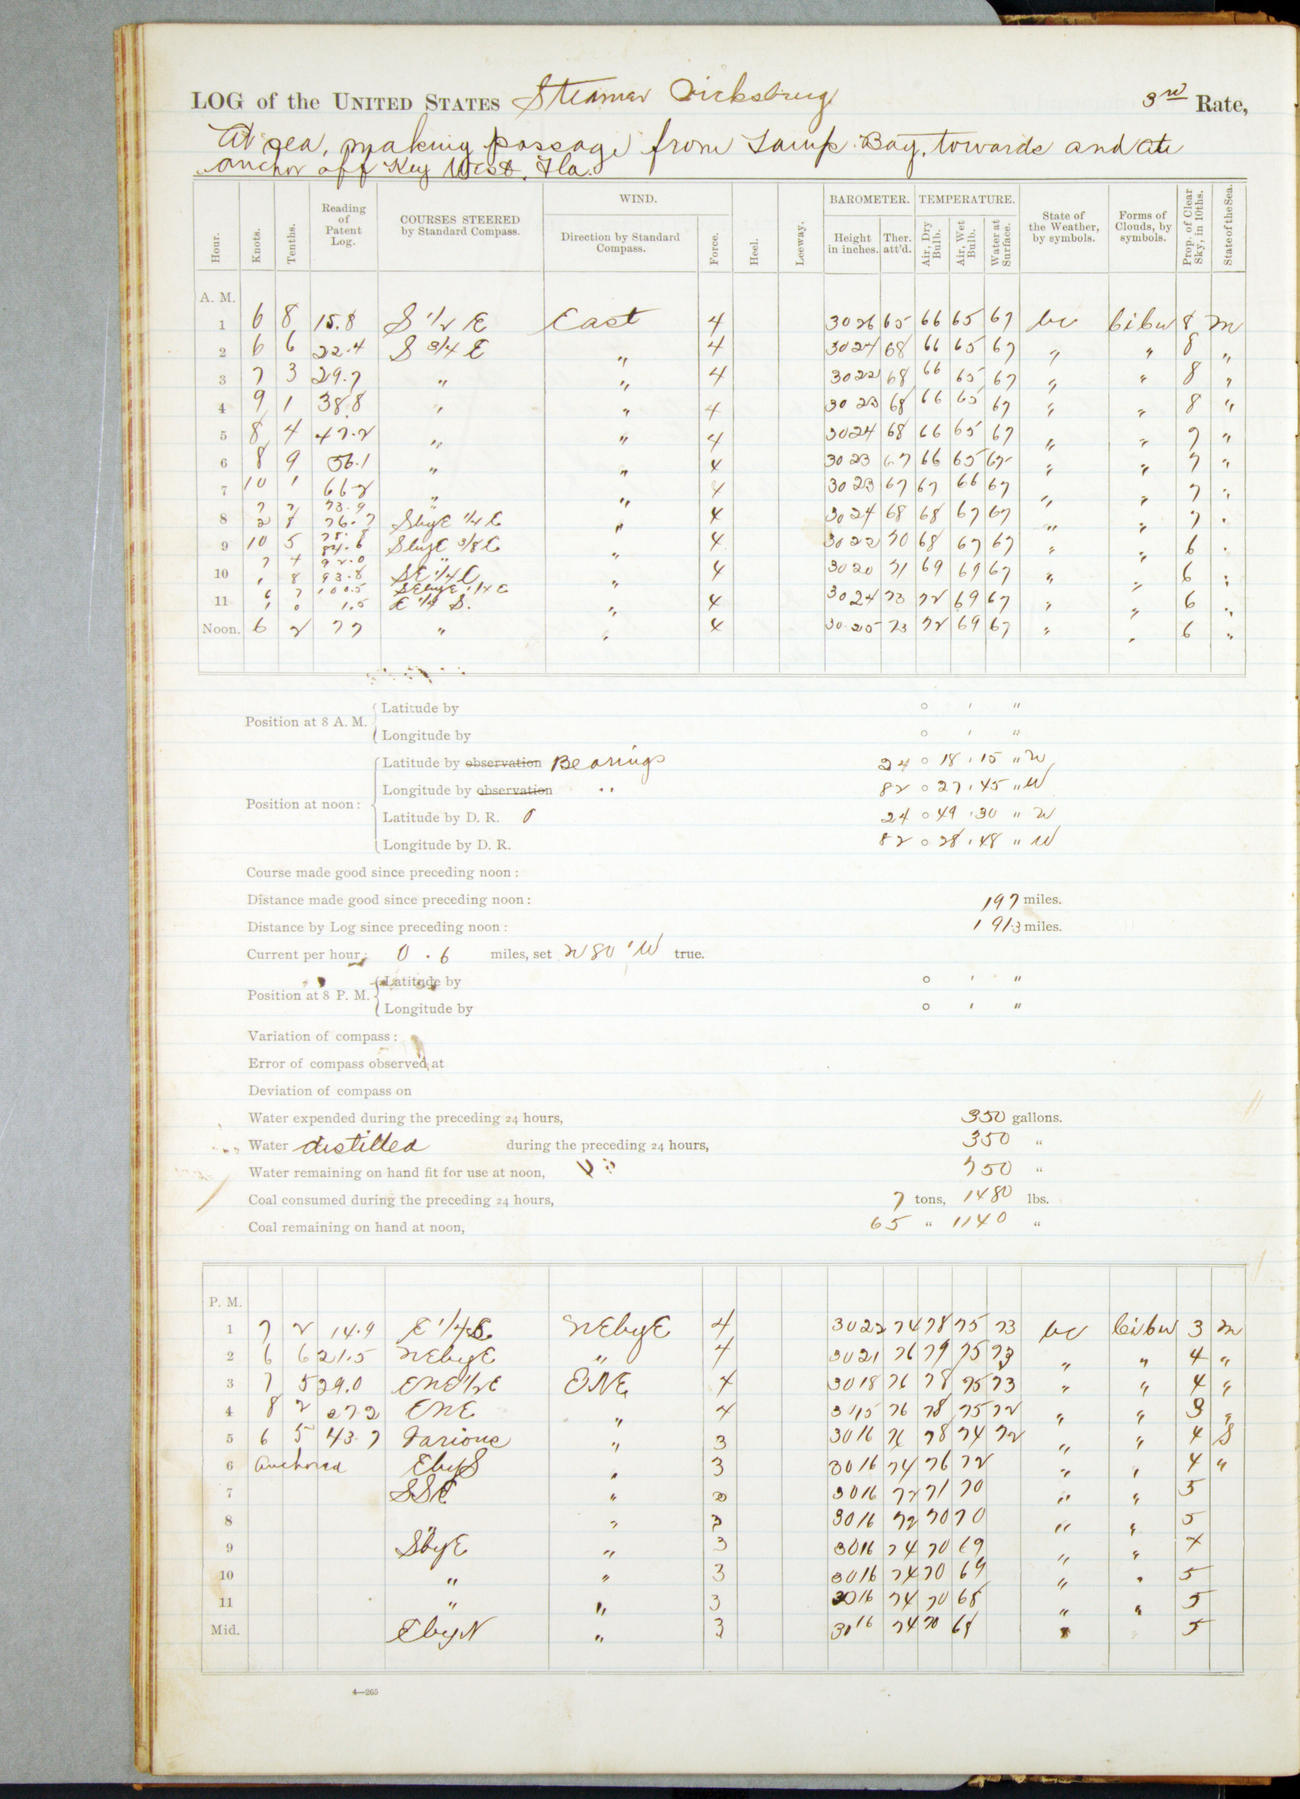 LOG of the UNITED STATES Steamer Vicksburg 3rd Rate,
At sea, making passage from Tampa Bay, towards and at
anchor off Key West, Fla.
Hour. Knots. Tenths. Reading of Patent Log. COURSES STEERED by Standard Compass. WIND. Direction by Standard Compass. Force. Heel. Leeway. BAROMETER. Height in inches. Ther. att'd. TEMPERATURE. Air, Dry Bulb. Air, Wet Bulb. Water at Surface. State of the Weather, by symbols. Forms of Clouds, by symbols. Prop. of Clear Sky, in 10ths. State of the Sea.
A. M.
1 6 8 15.8 S 1/2 E East 4 3026 65 66 65 67 bc 8 m
2 6 6 22.4 S 3/4 E " 4 3024 68 66 65 67 " " 8 "
3 7 3 29.7 " " 4 3022 68 66 65 67 " " 8 "
4 9 1 38.8 " " 4 3023 68 66 65 67 " " 8 "
5 8 4 47.2 " " 4 3024 68 66 65 67 " " 7 "
6 8 9 56.1 " " 4 3023 67 66 65 67 " " 7 "
7 10 1 66.2 " " 4 3023 67 67 66 67 " " 7 "
7 7 73.9
8 2 8 76.7 SbyE 1/4 E " 4 3024 68 68 67 67 " " 7 "
78.8
9 10 5 SbyE 3/8 E " 4 3022 70 68 67 67 " " 6 "
7 4 92.0 "
10 1 8 93.8 SE 1/4 E " 4 3020 71 69 69 67 " " 6 "
6 7 100.5 SEbyE 1/4 E
11 1 0 1.5 E 1/4 S. " 4 3024 73 72 69 67 " " 6 "
Noon. 6 2 7 7 " " 4 30.25 73 72 69 67 " " 6 "
Position at 8 A. M. Latitude by ° ' "
Longitude by ° ' "
Position at noon: Latitude by observation Bearings 24 ° 18 ' 15 " N
Longitude by observation " 82 ° 27 ' 45 " W
Latitude by D. R. 24 ° 49 ' 30 " N
Longitude by D. R. 82 ° 28 ' 48 " W
Course made good since preceding noon:
Distance made good since preceding noon: 197 miles.
Distance by Log since preceding noon: 191.3 miles.
Current per hour: 0.6 miles, set N 80 ' W true.
Position at 8 P. M. Latitude by ° ' "
Longitude by ° ' "
Variation of compass:
Error of compass observed at
Deviation of compass on
Water expended during the preceding 24 hours, 350 gallons.
Water distilled during the preceding 24 hours, 350 "
Water remaining on hand fit for use at noon, 750 "
Coal consumed during the preceding 24 hours, 7 tons, 1480 lbs.
Coal remaining on hand at noon, 65 " 1140 "
P. M.
1 7 2 14.9 E 1/4 S. NEbyE 4 3022 74 78 75 73 bc 3 m
2 6 6 21.5 NEbyE " 4 3021 76 79 75 73 " " 4 "
3 7 5 29.0 ENE 1/2 E ENE 4 3018 76 78 75 73 " " 4 "
4 8 2 37.2 ENE " 4 3015 76 78 75 72 " " 3 "
5 6 5 43.7 Various " 3 3016 76 78 74 72 " " 4 S
6 Anchored EbyS " 3 3016 74 76 72 " " 4 "
7 SSE " 3 3016 72 71 70 " " 5
8 " " 3 3016 72 70 70 " " 5
9 SbyE " 3 3016 74 70 69 " "
10 " " 3 3016 74 70 69 " " 5
11 " " 3 3016 74 70 68 " " 5
Mid. EbyN " 3 3016 74 70 68 " " 5
4—265